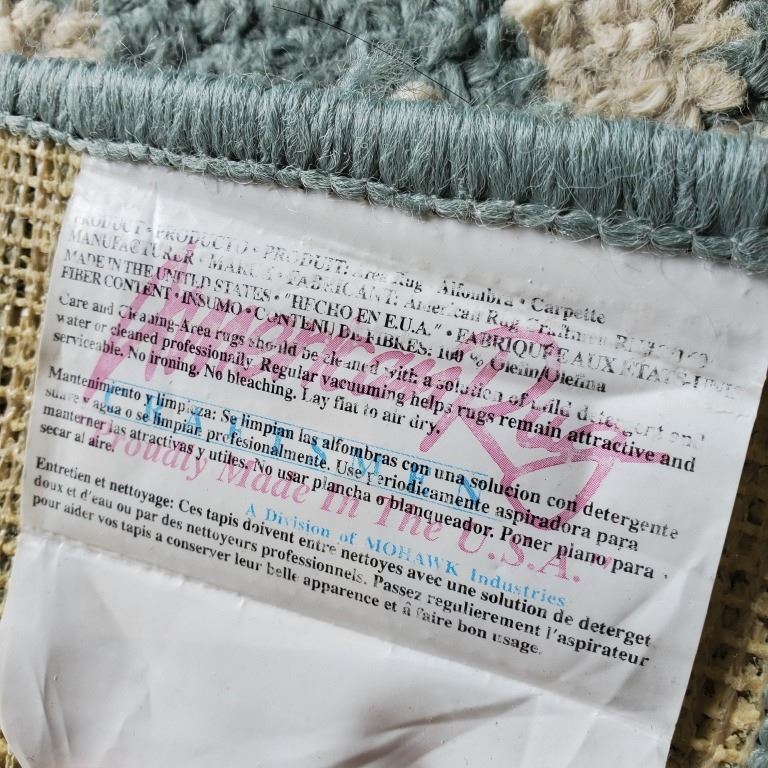 PRODUCT • PRODUCTO • PRODUIT: Area Rug Alfombra • Carpette
MANUFACTURER • MARCA • FABRICANT: American Rug Craftmen
MADE IN THE UNITED STATES • "HECHO EN E.U.A." • FABRIQUE AUX ETATS-UNIS
FIBER CONTENT • INSUMO • CONTENU DE FIBRES: 100 % Olefin/Olefina
Care and Cleaning-Area rugs should be cleaned with a solution of mild detergent and
water or cleaned professionally. Regular vacuuming helps rugs remain attractive and
serviceable. No ironing. No bleaching. Lay flat to air dry.
Mantenimiento y limpieza: Se limpian las alfombras con una solucion con detergente
suave y agua o se limpiar profesionalmente. Use periodicamente aspiradora para
manterner las atractivas y utiles. No usar plancha o blanqueador. Poner plano para
secar al aire.
Entretien et nettoyage: Ces tapis doivent entre nettoyes avec une solution de deterget
doux et d'eau ou par des nettoyeurs professionnels. Passez regulierement l'aspirateur
pour aider vos tapis a conserver leur belle apparence et à faire bon usage.
American Rug
CRAFTSMEN
Proudly Made In The U.S.A.
A Division of MOHAWK Industries